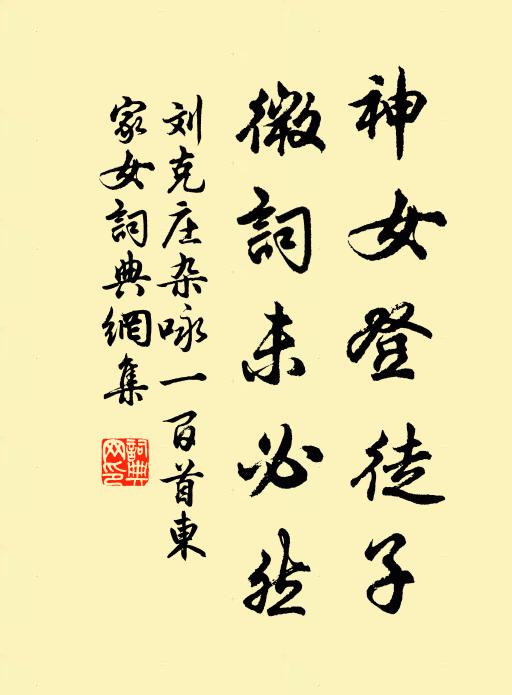 神女登徒子
微詞未必然
刘克庄杂咏一百首東
家女詞典網集
詞典
网印